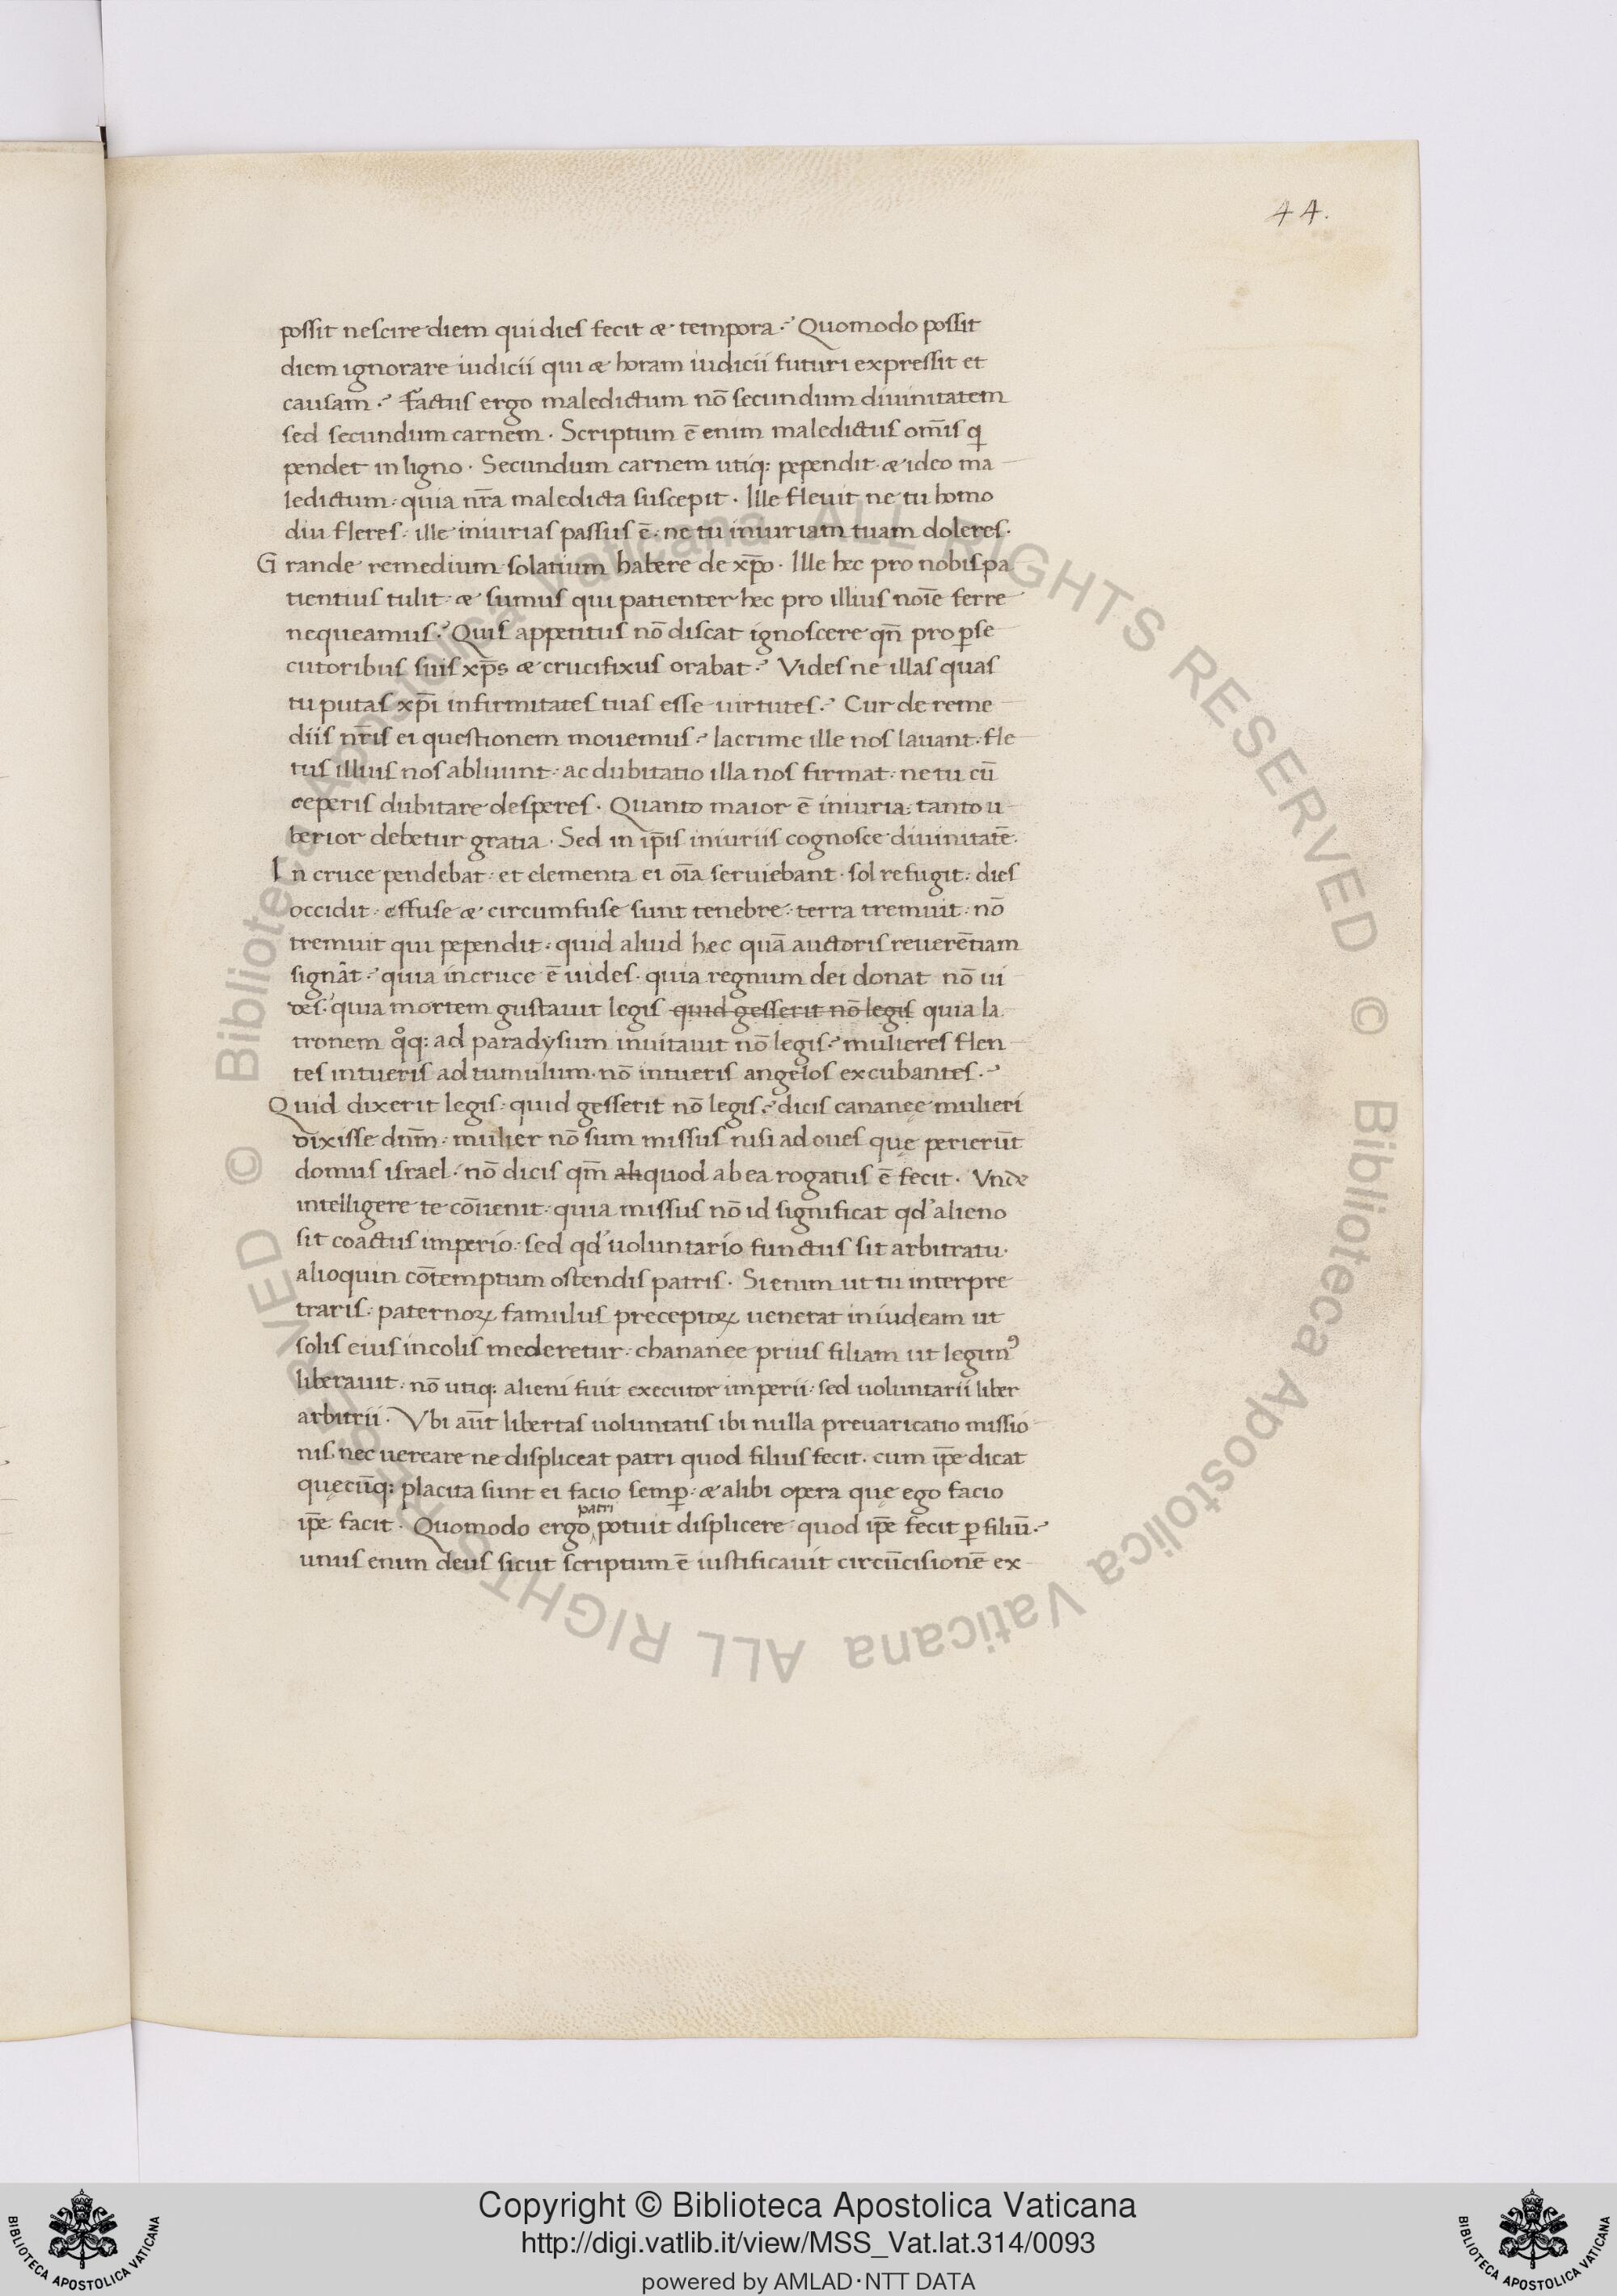 44.
possit nescire diem qui dies fecit & tempora? Quomodo possit
diem ignorare iudicii qui & horam iudicii futuri expressit et
causam? Factus ergo maledictum nō secundum diuinitatem
sed secundum carnem. Scriptum ē enim maledictus om̄is q
pendet in ligno. Secundum carnem utiq: pependit. & ideo ma
ledictum: quia nr̄a maledicta suscepit. Ille fleuit ne tu homo
diu fleres: ille iniurias passus ē. ne tu iniuriam tuam doleres.
Grande remedium solatium habere de xp̄o. Ille hec pro nobis pa
tientius tulit: & sumus qui patienter hec pro illius noīe ferre
nequeamus? Quis appetitus nō discat ignoscere qn̄ pro p̱se
cutoribus suis xp̄s & crucifixus orabat? Vides ne illas quas
tu putas xp̄i infirmitates tuas esse uirtutes? Cur de reme
diis nr̄is ei questionem mouemus? lacrime ille nos lauant. fle
tus illius nos abluunt: ac dubitatio illa nos firmat: ne tu cū
ceperis dubitare desperes. Quanto maior ē iniuria: tanto u
berior debetur gratia. Sed in ip̄is iniuriis cognosce diuinitatē.
In cruce pendebat: et elementa ei oīa seruiebant. sol refugit: dies
occidit: effuse & circumfuse sunt tenebre: terra tremuit: nō
tremuit qui pependit: quid aliud hęc quā auctoris reuerētiam
signāt? quia in cruce ē uides. quia regnum dei donat nō ui
des? quia mortem gustauit legis quid gesserit nō legis quia la
tronem qͦq: ad paradysum inuitauit nō legis? mulieres flen
tes intueris ad tumulum. nō intueris angelos excubantes?
Quid dixerit legis: quid gesserit nō legis? dicis cananęe mulieri
dixisse dn̄m: mulier nō sum missus nisi ad oues quę perierūt
domus israel: nō dicis qm̄ aliquod ab ea rogatus ē fecit. Vnde
intelligere te cōuenit: quia missus nō id significat qd' alieno
sit coactus imperio: sed qd' uoluntario functus sit arbitratu.
alioquin cōtemptum ostendis patris. Si enim ut tu interpre
traris: paternoꝝ famulus preceptoꝝ uenerat in iudeam ut
solis eius incolis mederetur: chananee prius filiam ut legimꝰ
liberauit: nō utiq: alieni fuit executor imperii: sed uoluntarii liber
arbitrii. Vbi aūt libertas uoluntatis ibi nulla preuaricatio missio
nis. nec uereare ne displiceat patri quod filius fecit. cum ip̄e dicat
quęcūq: placita sunt ei facio semp̱: & alibi opera quę ego facio
patri
ip̄e facit. Quomodo ergo potuit displicere quod ip̄e fecit p̱ filiū?
unus enim deus sicut scriptum ē iustificauit circūcisionē ex
© Biblioteca Apostolica Vaticana ALL RIGHTS RESERVED © Biblioteca Apostolica Vaticana ALL RIGHTS RESERVED
Copyright © Biblioteca Apostolica Vaticana
http://digi.vatlib.it/view/MSS_Vat.lat.314/0093
powered by AMLAD·NTT DATA
BIBLIOTECA APOSTOLICA VATICANA
BIBLIOTECA APOSTOLICA VATICANA